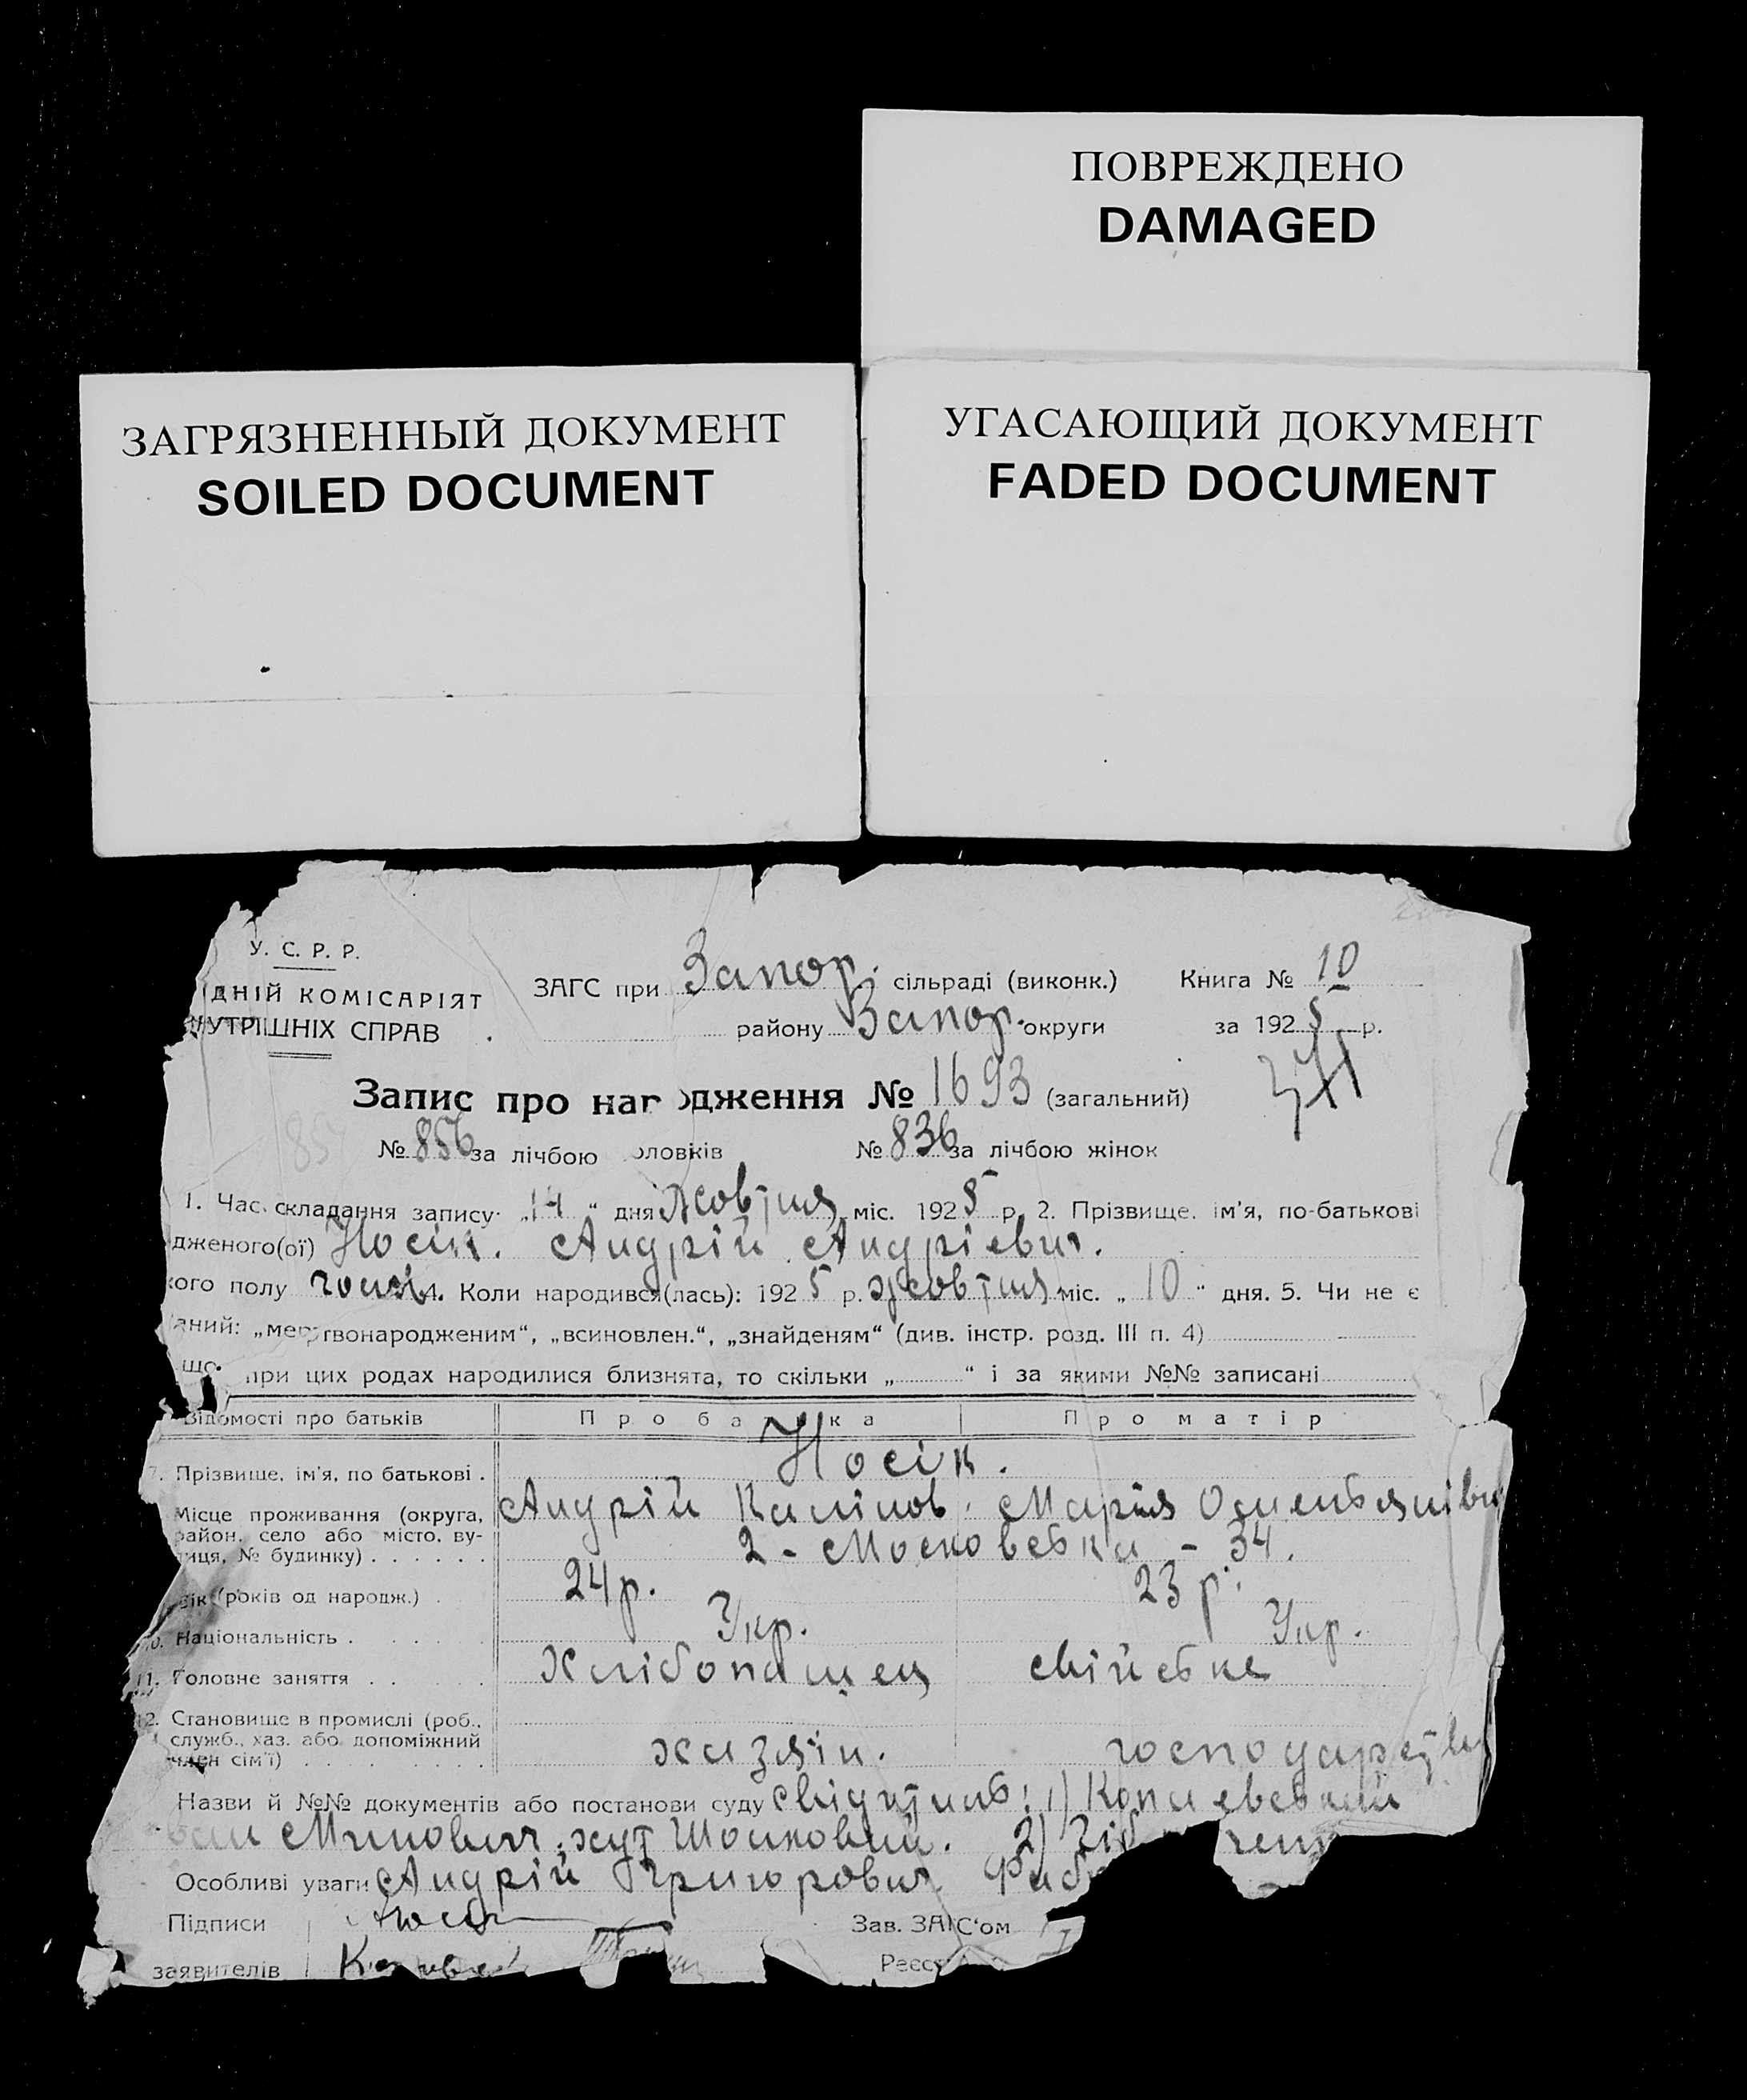 ПОВРЕЖДЕНО
DAMAGED
ЗАГРЯЗНЕННЫЙ ДОКУМЕНТ
SOILED DOCUMENT
УГАСАЮЩИЙ ДОКУМЕНТ
FADED DOCUMENT
У. С. Р. Р.
ДНІЙ КОМІСАРІЯТ
УТРІШНІХ СПРАВ
ЗАГС при Запор. сільраді (виконк.) Книга № 10
району Запор. округи за 1925 р.
Запис про нар одження № 1693 (загальний)
№ 856 за лічбою оловіків № 836 за лічбою жінок
1. Час складання запису „14“ дня Жовтня міс. 1925 р. 2. Прізвище, ім'я, по-батькові
дженого(ої) Носік. Андрій Андрієвич.
кого полу чолов. 4. Коли народився(лась): 1925 р. жовтня міс. „10“ дня. 5. Чи не є
аний: „мертвонародженим“, „всиновлен.“, „знайденям“ (див. інстр. розд. III п. 4)
що при цих родах народилися близнята, то скільки „ “ і за якими №№ записані
Відомості про батьків Про батька Про матір
7. Прізвище, ім'я, по батькові . Носік.
Місце проживання (округа, Андрій Калінов. Марія
район, село або місто, ву-
лиця, № будинку) . . . . . . 2 - Московська - 34.
вік (років од народж.) . 24 р. 23 р.
10. Національність . Укр. Укр.
11. Головне заняття . . Хлібопашец свійське
12. Становище в промислі (роб.,
служб., хаз. або допоміжний
член сім'ї) . . . . хазяін. господарств
Назви й №№ документів або постанови суду свідитель: 1)
хут 2)
Особливі уваги Андрій Григорович
Підписи Зав. ЗАГС'ом
заявителів Реєст